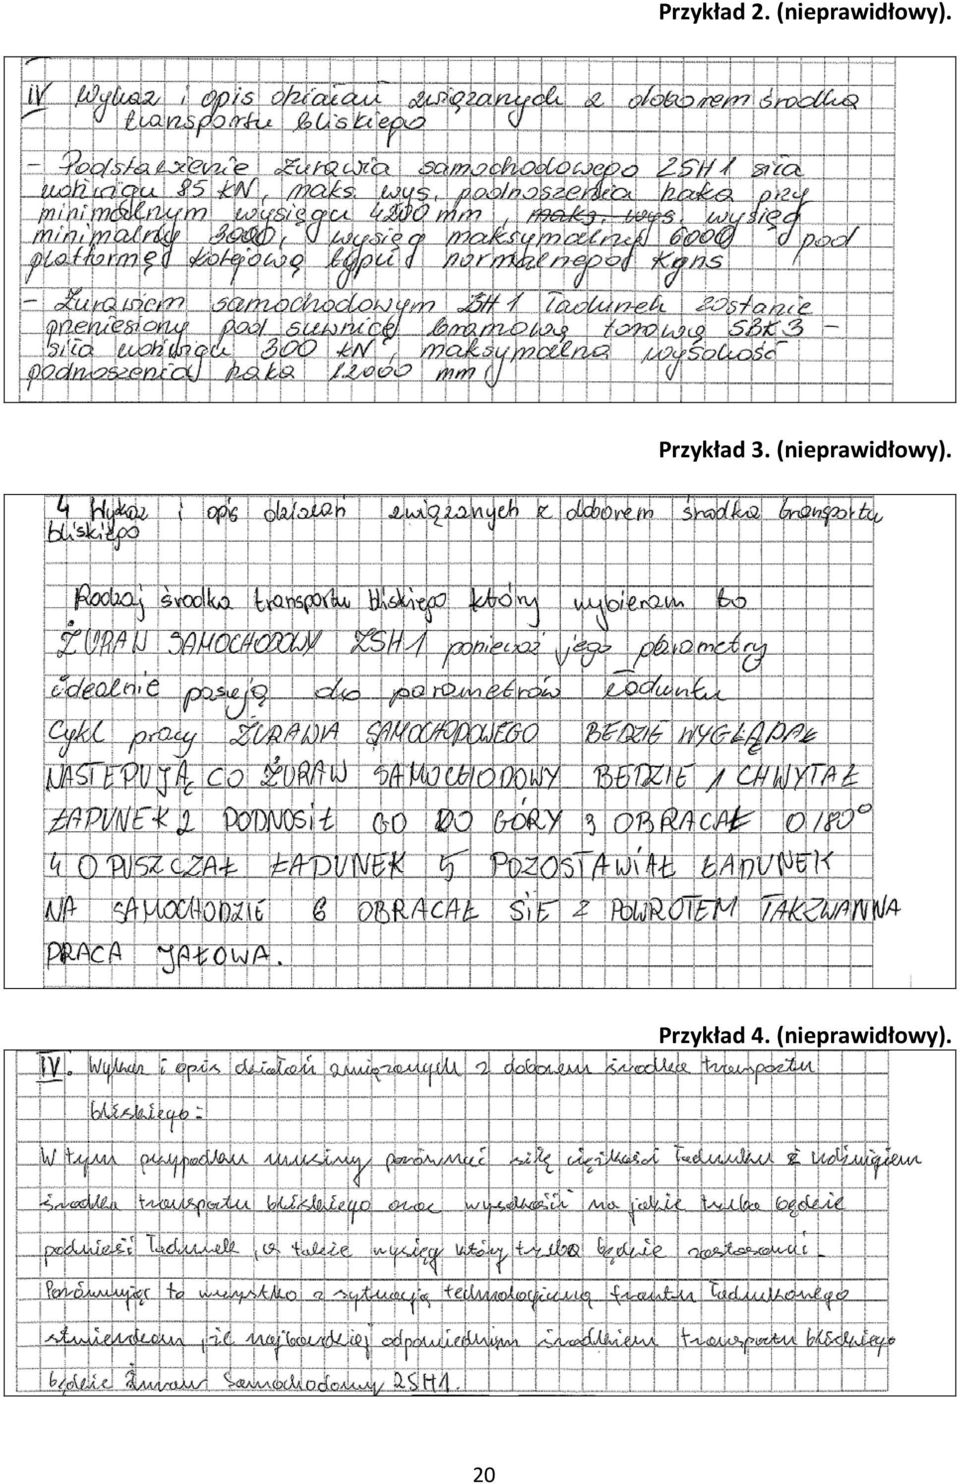 Przykład 2. (nieprawidłowy).
IV Wykaz i opis działań związanych z doborem środka
transportu bliskiego
- Podstawienie żurawia samochodowego ZSH1 siła
udźwigu 85 kN, maks. wys. podnoszenia haka przy
minimalnym wysięgu 4200 mm, maks. wys. wysięg
minimalny 3000, wysięg maksymalny 6000 pod
platformę kolejową typu normalnego Kgns
- Żurawiem samochodowym ZSH 1 ładunek zostanie
przeniesiony pod suwnicę bramową torową SBK3 -
siła udźwigu 300 kN, maksymalna wysokość
podnoszenia haka 12000 mm
Przykład 3. (nieprawidłowy).
4 Wykaz i opis działań związanych z doborem środka transportu
bliskiego
Rodzaj środka transportu bliskiego który wybieram to
ŻURAW SAMOCHODOWY ZSH1 ponieważ jego parametry
idealnie pasują do parametrów ładunku
Cykl pracy ŻURAWIA SAMOCHODOWEGO BEDZIE WYGLĄDAŁ
NASTEPUJĄCO ŻURAW SAMOCHODOWY BEDZIE 1 CHWYTAŁ
ŁADUNEK 2 PODNOSIŁ GO DO GÓRY 3 OBRACAŁ O 180°
4 OPUSZCZAŁ ŁADUNEK 5 POZOSTAWIAŁ ŁADUNEK
NA SAMOCHODZIE 6 OBRACAŁ SIE Z POWROTEM TAKZWANNA
PRACA JAŁOWA.
Przykład 4. (nieprawidłowy).
IV. Wykaz i opis działań związanych z doborem środka transportu
bliskiego:
W tym przypadku musimy porównać siłę ciężkości ładunku z udźwigiem
środka transportu bliskiego oraz wysokości na jakie trzeba będzie
podnieść ładunek, a także wysięg który trzeba będzie zastosować.
Porównując to wszystko z sytuacją technologiczną frontu ładunkowego
stwierdzam, że najbardziej odpowiednim środkiem transportu bliskiego
będzie Żuraw Samochodowy ZSH1.
20